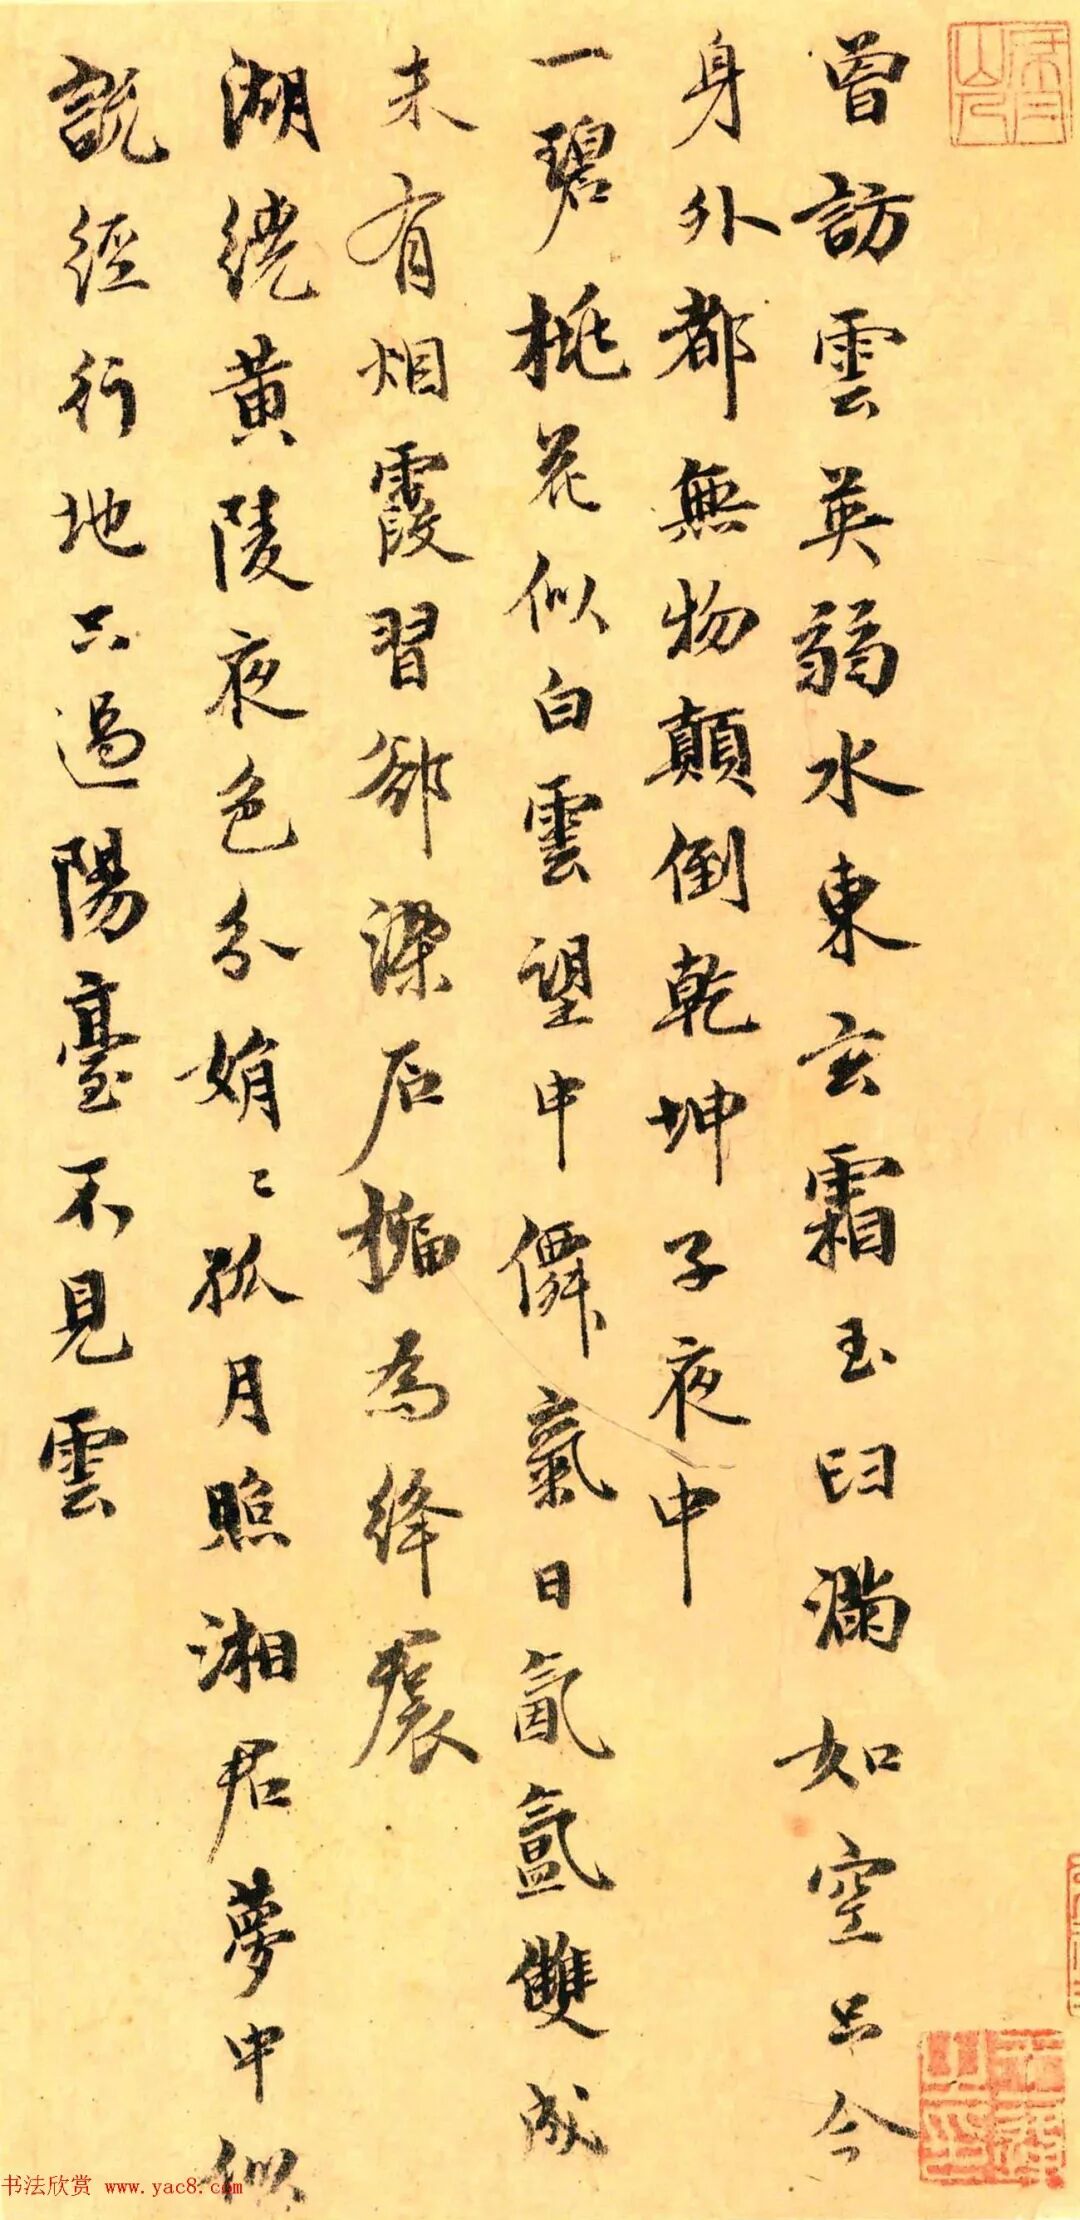 曾訪雲英弱水東玄霜玉臼滿如空只今
身外都無物顛倒乾坤子夜中
一碧桃花似白雲望中僊氣日氤氳雙成
未有烟霞習卻染后楄為絳裙
湖繞黃陵夜色分娟〻孤月照湘君夢中似
說經行地只過陽臺不見雲
书法欣赏 www.yac8.com